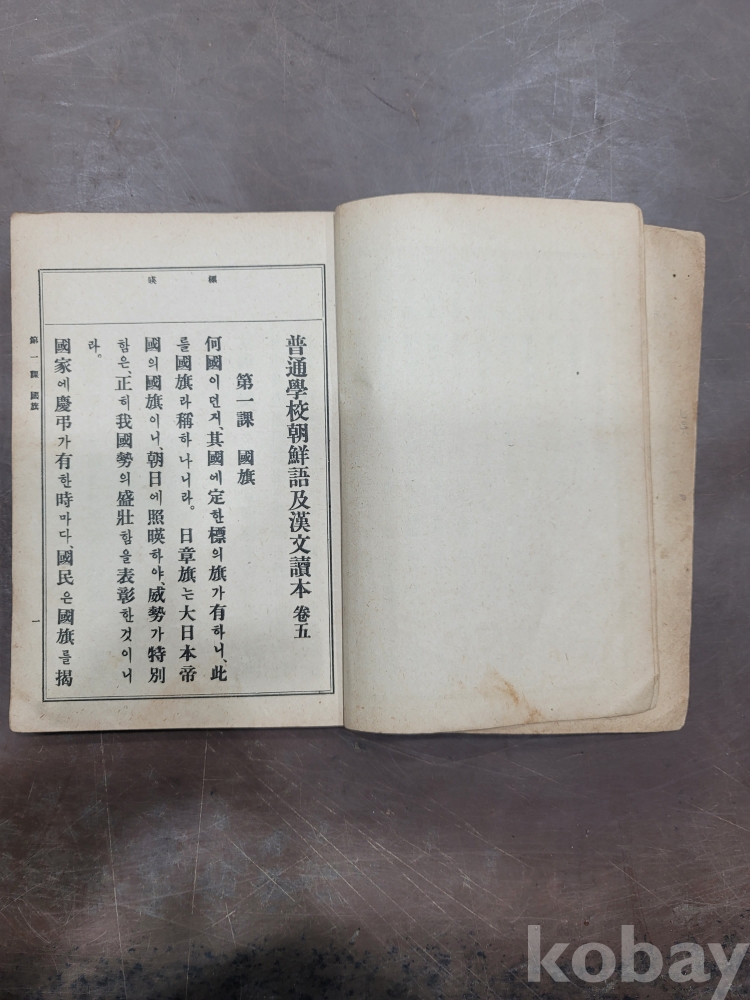 標
暎
普通學校朝鮮語及漢文讀本 卷五
第一課 國旗
何國이던지、其國에定한標의旗가有하니、此
를國旗라稱하나니라。日章旗는大日本帝
國의國旗이니、朝日에照暎하야、威勢가特別
함은、正히我國勢의盛壯함을表彰한것이니
라。
國家에慶弔가有한時마다、國民은國旗를揭
第一課 國旗
一
kobay